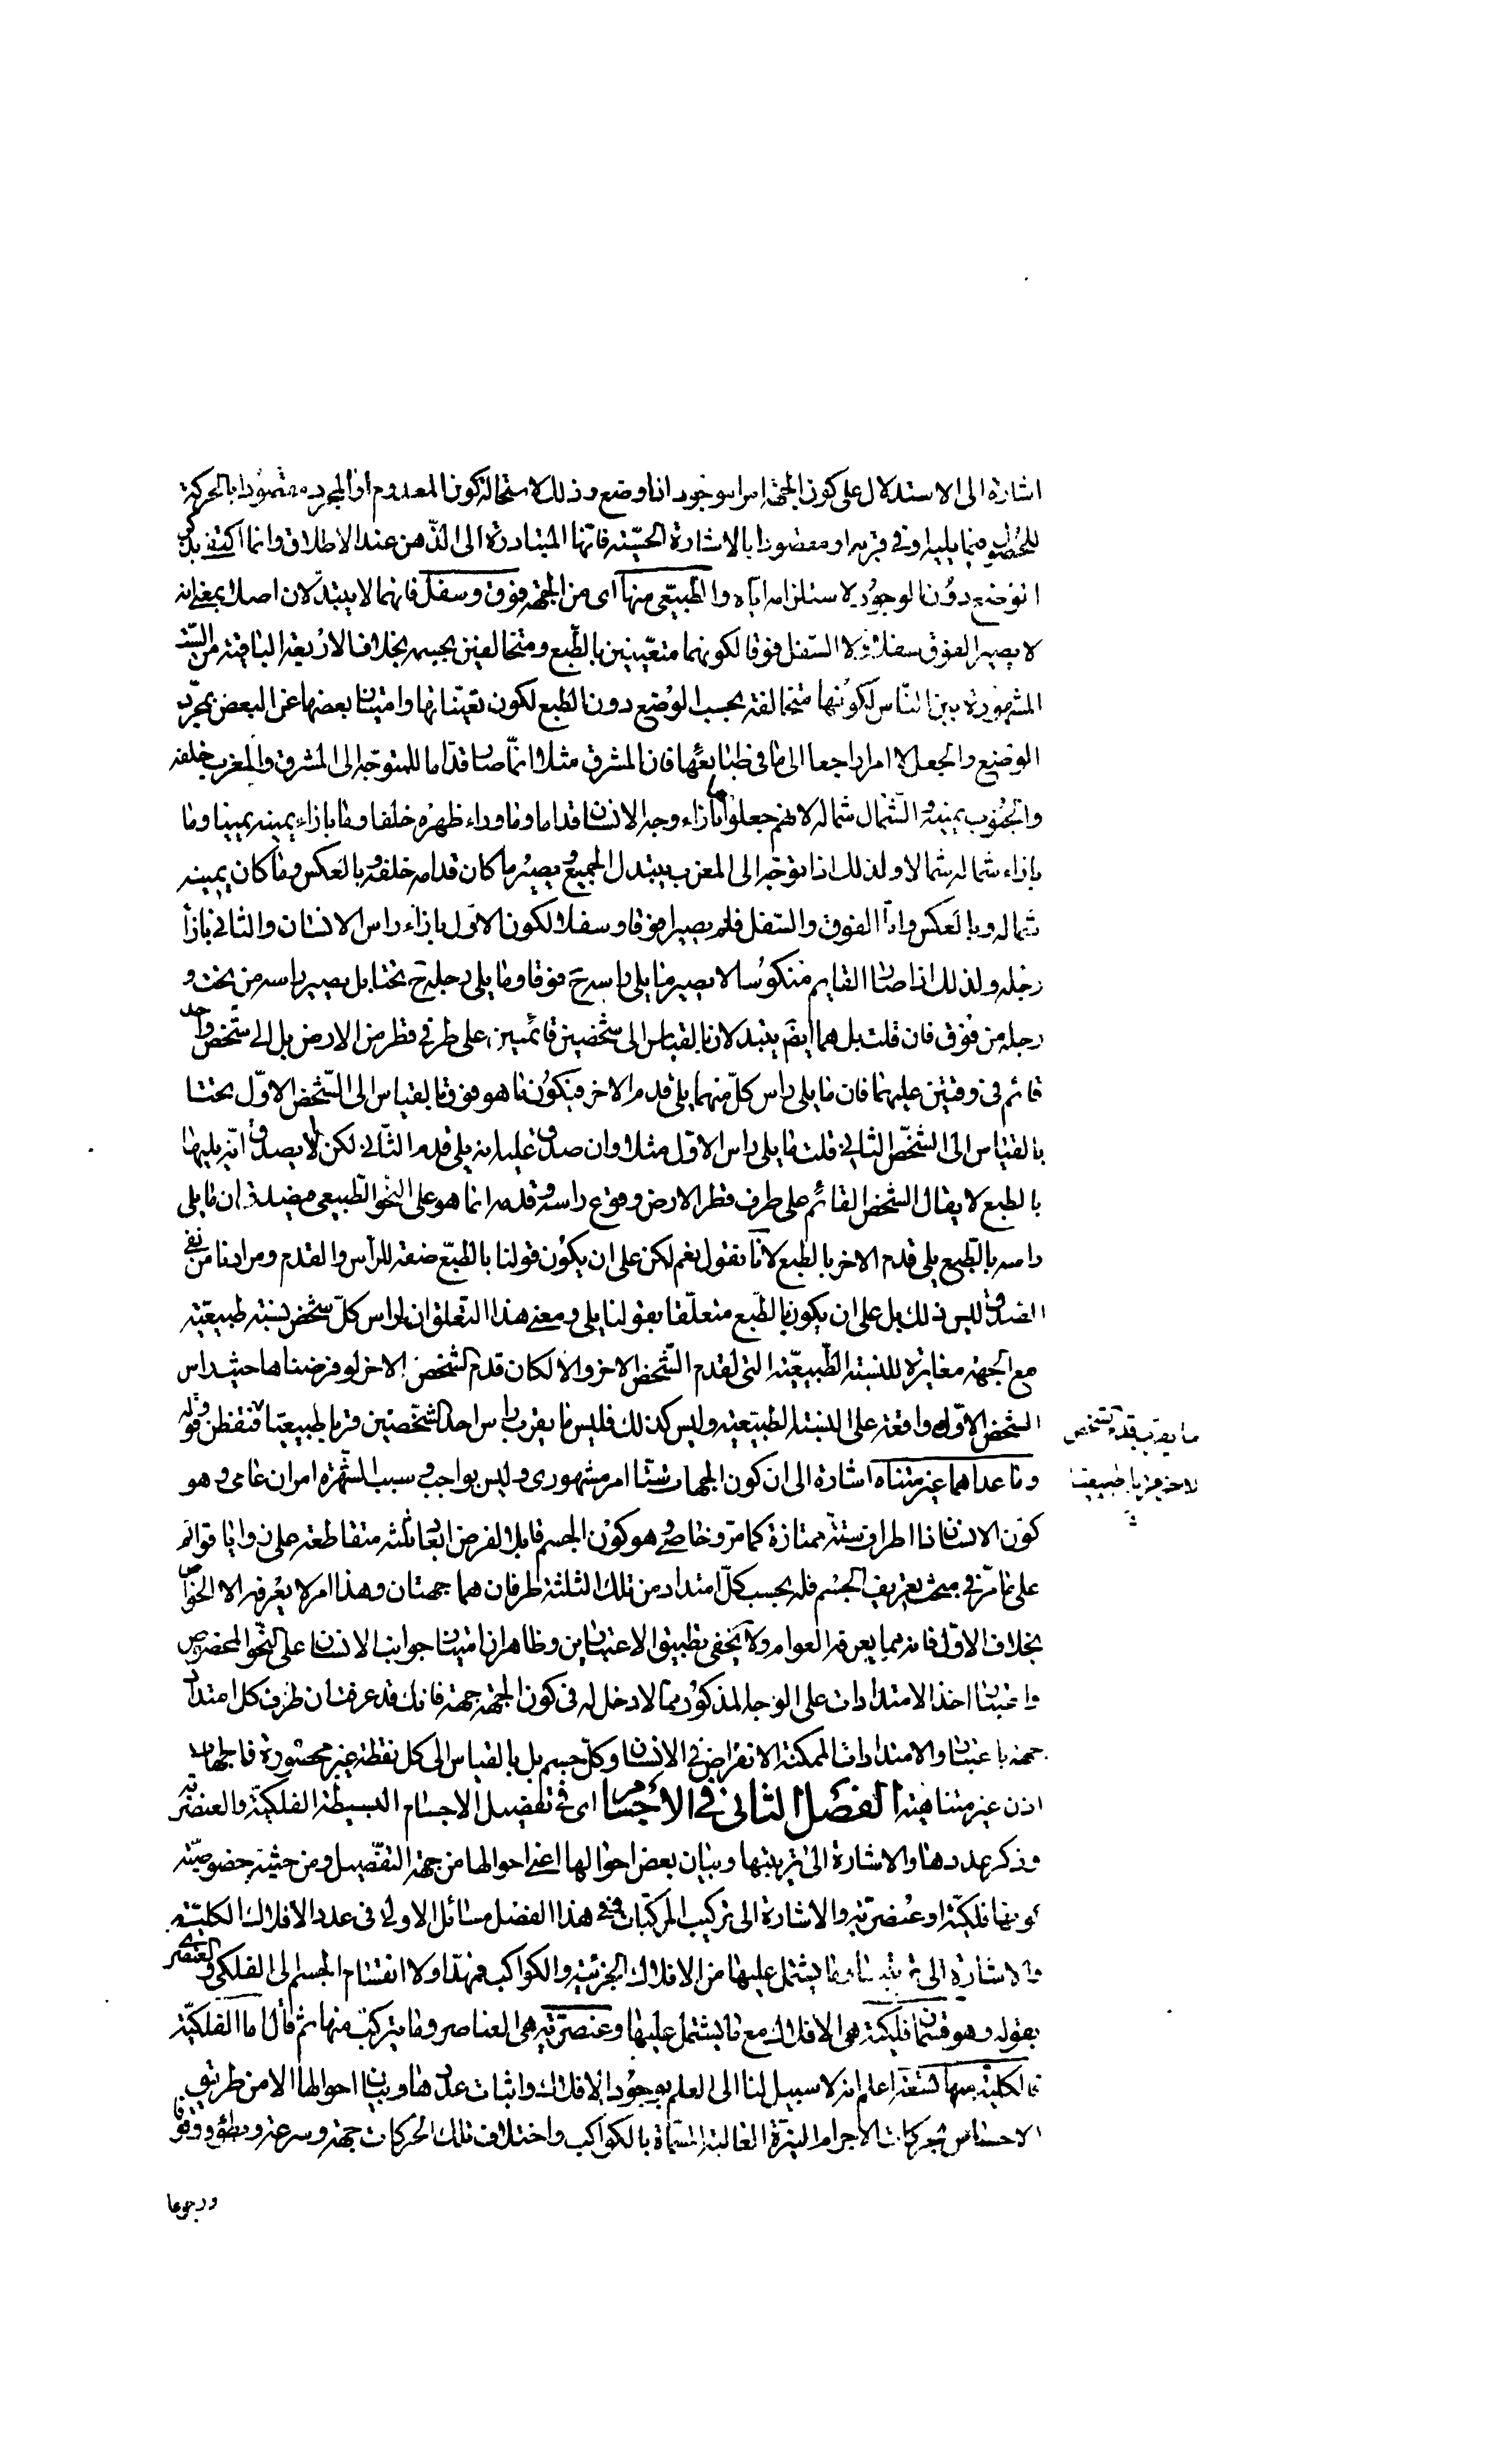 اشارة الى الاستدلال على كون الجهة امرا موجودا ذا وضع وذلك لاستحالة كون المعدوم او المجرد مقصودا بالحركة
للحصول فيما يليه او في قربه او مقصودا بالاشارة الحسّية فانها المتبادرة الى الذهن عند الاطلاق وانما اكتفى بذكر
الوضع دون الوجود لاستلزامه اياه والطبيعى منها اى من الجهة فوق وسفل فانهما لا يتبدّلان اصلا بمعنى انه
لا يصير الفوق سفلا ولا السّفل فوقا لكونهما متعيّنين بالطّبع ومتخالفين بحسبه بخلاف الاربعة الباقية من السّت
المشهورة بين النّاس لكونها متخالفة بحسب الوضع دون الطبع لكون تعيّناتها وامتياز بعضها عن البعض بمجرّد
الوضع والجعل لا امرا راجعا الى ما في طبايعها فان المشرق مثلا انّما صار قدّاما للمتوجّه الى المشرق والمغرب خلفه
والجنوب يمينه والشّمال شماله لانهم جعلوا ما بازاء وجه الانسان قداما وما وراء ظهره خلفا وما بازاء يمينه يمينا وما
بازاء شماله شمالا ولذلك اذا توجّه الى المغرب يتبدل الجميع ويصير ما كان قدامه خلفه وبالعكس وما كان يمينه
شماله وبالعكس وامّا الفوق والسّفل فلم يصيرا فوقا وسفلا لكون الاوّل بازاء راس الانسان والثانى بازاء
رجله ولذلك اذا صار القايم منكوسا لا يصير ما يلى راسه ح فوقا وما يلى رجله ح تحتا بل يصير راسه من تحت و
رجله من فوق فان قلت بل هما ايضً يتبدلان بالقياس الى شخصين قائمين على طرفى قطر من الارض بل الى شخص واحد
قائم فى وقتين عليهما فان ما يلى راس كلّ منهما يلى قدم الاخر فيكون ما هو فوق بالقياس الى الشّخص الاوّل تحتا
بالقياس الى الشخص الثانى قلت ما يلى راس الاوّل مثلا وان صدق عليه انه يلى قدم الثّانى لكن لا يصدق انّه يليها
بالطبع لا يقال الشخص القائم على طرف قطر الارض وقوع راسه وقدمه انما هو على النحو الطّبيعى فيصدق ان ما يلى
راسه بالطّبع يلى قدم الاخر بالطبع لانّا نقول نعم لكن على ان يكون قولنا بالطبع صفة للرأس والقدم ومرادنا من نفى
الصدق ليس ذلك بل على ان يكون بالطّبع متعلّقا بقولنا يلى ومعنى هذا التعلق ان لراس كلّ شخص نسبة طبيعيّة
مع الجهة مغايرة للنسبة الطّبيعيّة التى لقدم الشّخص الاخر والّا لكان قدم الشخص الاخر لو فرضناها حيث راس
الشخص الاوّل واقعة على النسبة الطبيعيّة وليس كذلك فليس ما يقرب راس احد الشخصين قربا طبيعيّا فتفطن وقوله
ما يقرب قدم الشخص
الاخر قربا طبيعيا
وما عداهما غير متناه اشارة الى ان كون الجهات ستّا امر مشهورى وليس بواجب وسبب الشّهرة امران عامى وهو
كون الانسان ذا اطراف ستّة ممتازة كما مرّ وخاصى وهو كون الجسم قابلا لفرض ابعاد ثلثه متقاطعة على زوايا قوائم
على ما مرّ فى مبحث تعريف الجسم فله بحسب كلّ امتداد من تلك الثلثة طرفان هما جهتان وهذا امر لا يعرفه الا الخواص
بخلاف الاوّل فانه مما يعرفه العوام ولا يخفى تطبيق الاعتبارين وظاهر ان امتياز جوانب الانسان على النّحو المخصوص
واعتبار اخذ الامتدادات على الوجه المذكور مما لا دخل له فى كون الجهة جهة فانك قد عرفت ان طرف كل امتداد
جهة باعتبار والامتدادات الممكنة الانفراض فى الانسان وكلّ جسم بل بالقياس الى كل نقطة غير محصورة فالجهات
اذن غير متناهية الفصل الثانى فى الاجسام اى فى تفصيل الاجسام البسيطة الفلكيّة والعنصريّة
وذكر عددها والاشارة الى ترتيبها وبيان بعض احوالها اعنى احوالها من جهة التفصيل ومن حيثية خصوصيّة
كونها فلكيّة او عنصريّة والاشارة الى تركيب المركّبات ففى هذا الفصل مسائل الاولى فى عدد الافلاك الكليّة
والاشارة الى ترتيبها وما يشتمل عليها من الافلاك الجزئية والكواكب فمهّد اولا انقسام الجسم الى الفلكى والعنصرى
بقوله وهو قسمان فلكية هى الافلاك مع ما يشتمل عليها وعنصريّة هى العناصر وما يتركّب منها ثم قال اما الفلكيّة
فالكلية منها تسعة اعلم انه لا سبيل لنا الى العلم بوجود الافلاك واثبات عددها وبيان احوالها الا من طريق
الاحساس بحركات الاجرام النيّرة العالية المسمّاة بالكواكب واختلاف تلك الحركات جهة وسرعة وبطؤ ووقوفا
ورجوعا